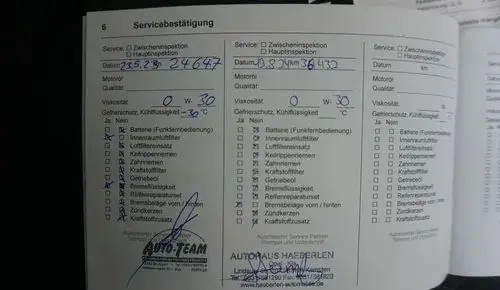 6 Servicebestätigung
Service: Zwischeninspektion
Hauptinspektion
Datum 23.5.23 km 24647
Motoröl
Qualität
Viskosität 0 W- 30
Gefrierschutz, Kühlflüssigkeit -30 °C
Ja Nein
Batterie (Funkfernbedienung)
Innenraumluftfilter
Luftfiltereinsatz
Keilrippenriemen
Zahnriemen
Kraftstofffilter
Getriebeöl
Bremsflüssigkeit
Reifenreparaturset
Bremsbeläge vorn / hinten
Zündkerzen
Kraftstoffzusatz
AUTO-TEAM
Service: Zwischeninspektion
Hauptinspektion
Datum km 36432
Motoröl
Qualität
Viskosität 0 W- 30
Gefrierschutz, Kühlflüssigkeit °C
Ja Nein
Batterie (Funkfernbedienung)
Innenraumluftfilter
Luftfiltereinsatz
Keilrippenriemen
Zahnriemen
Kraftstofffilter
Getriebeöl
Bremsflüssigkeit
Reifenreparaturset
Bremsbeläge vorn / hinten
Zündkerzen
Kraftstoffzusatz
Autorisierter Service Partner
Stempel und Unterschrift
AUTOHAUS HAEBERLEN
Kempten
www.haeberlen-autohaus.de
Service: Zwischeninspektion
Hauptinspektion
Datum km
Motoröl
Qualität
Viskosität W-
Gefrierschutz, Kühlflüssigkeit
Ja Nein
Batterie (Funkfernbedienung)
Innenraumluftfilter
Luftfiltereinsatz
Keilrippenriemen
Zahnriemen
Kraftstofffilter
Getriebeöl
Bremsflüssigkeit
Reifenreparaturset
Bremsbeläge vorn / hinten
Zündkerzen
Kraftstoffzusatz
Autorisierter Service
Stempel und